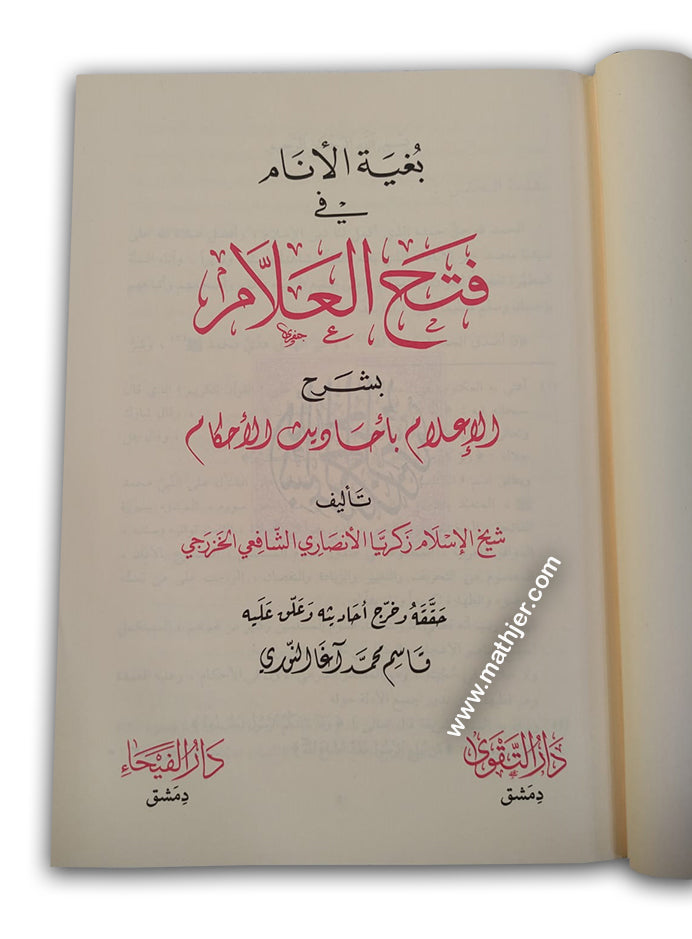 بُغيَة الأنَام
في
فتح العلَّام
جفري
بشرح
الإعلام بأحاديث الأحكام
تأليف
شيخ الإسلام زكريا الأنصاري الشافعي الخزرجي
حقَّقَهُ وخرّج أحاديثه وعَلّق عَليه
قاسم محمد آغا النّوري
دَارُ التَّقوى
دِمَشق
دَارُ الفَيحَاء
دِمَشق
www.mathjer.com